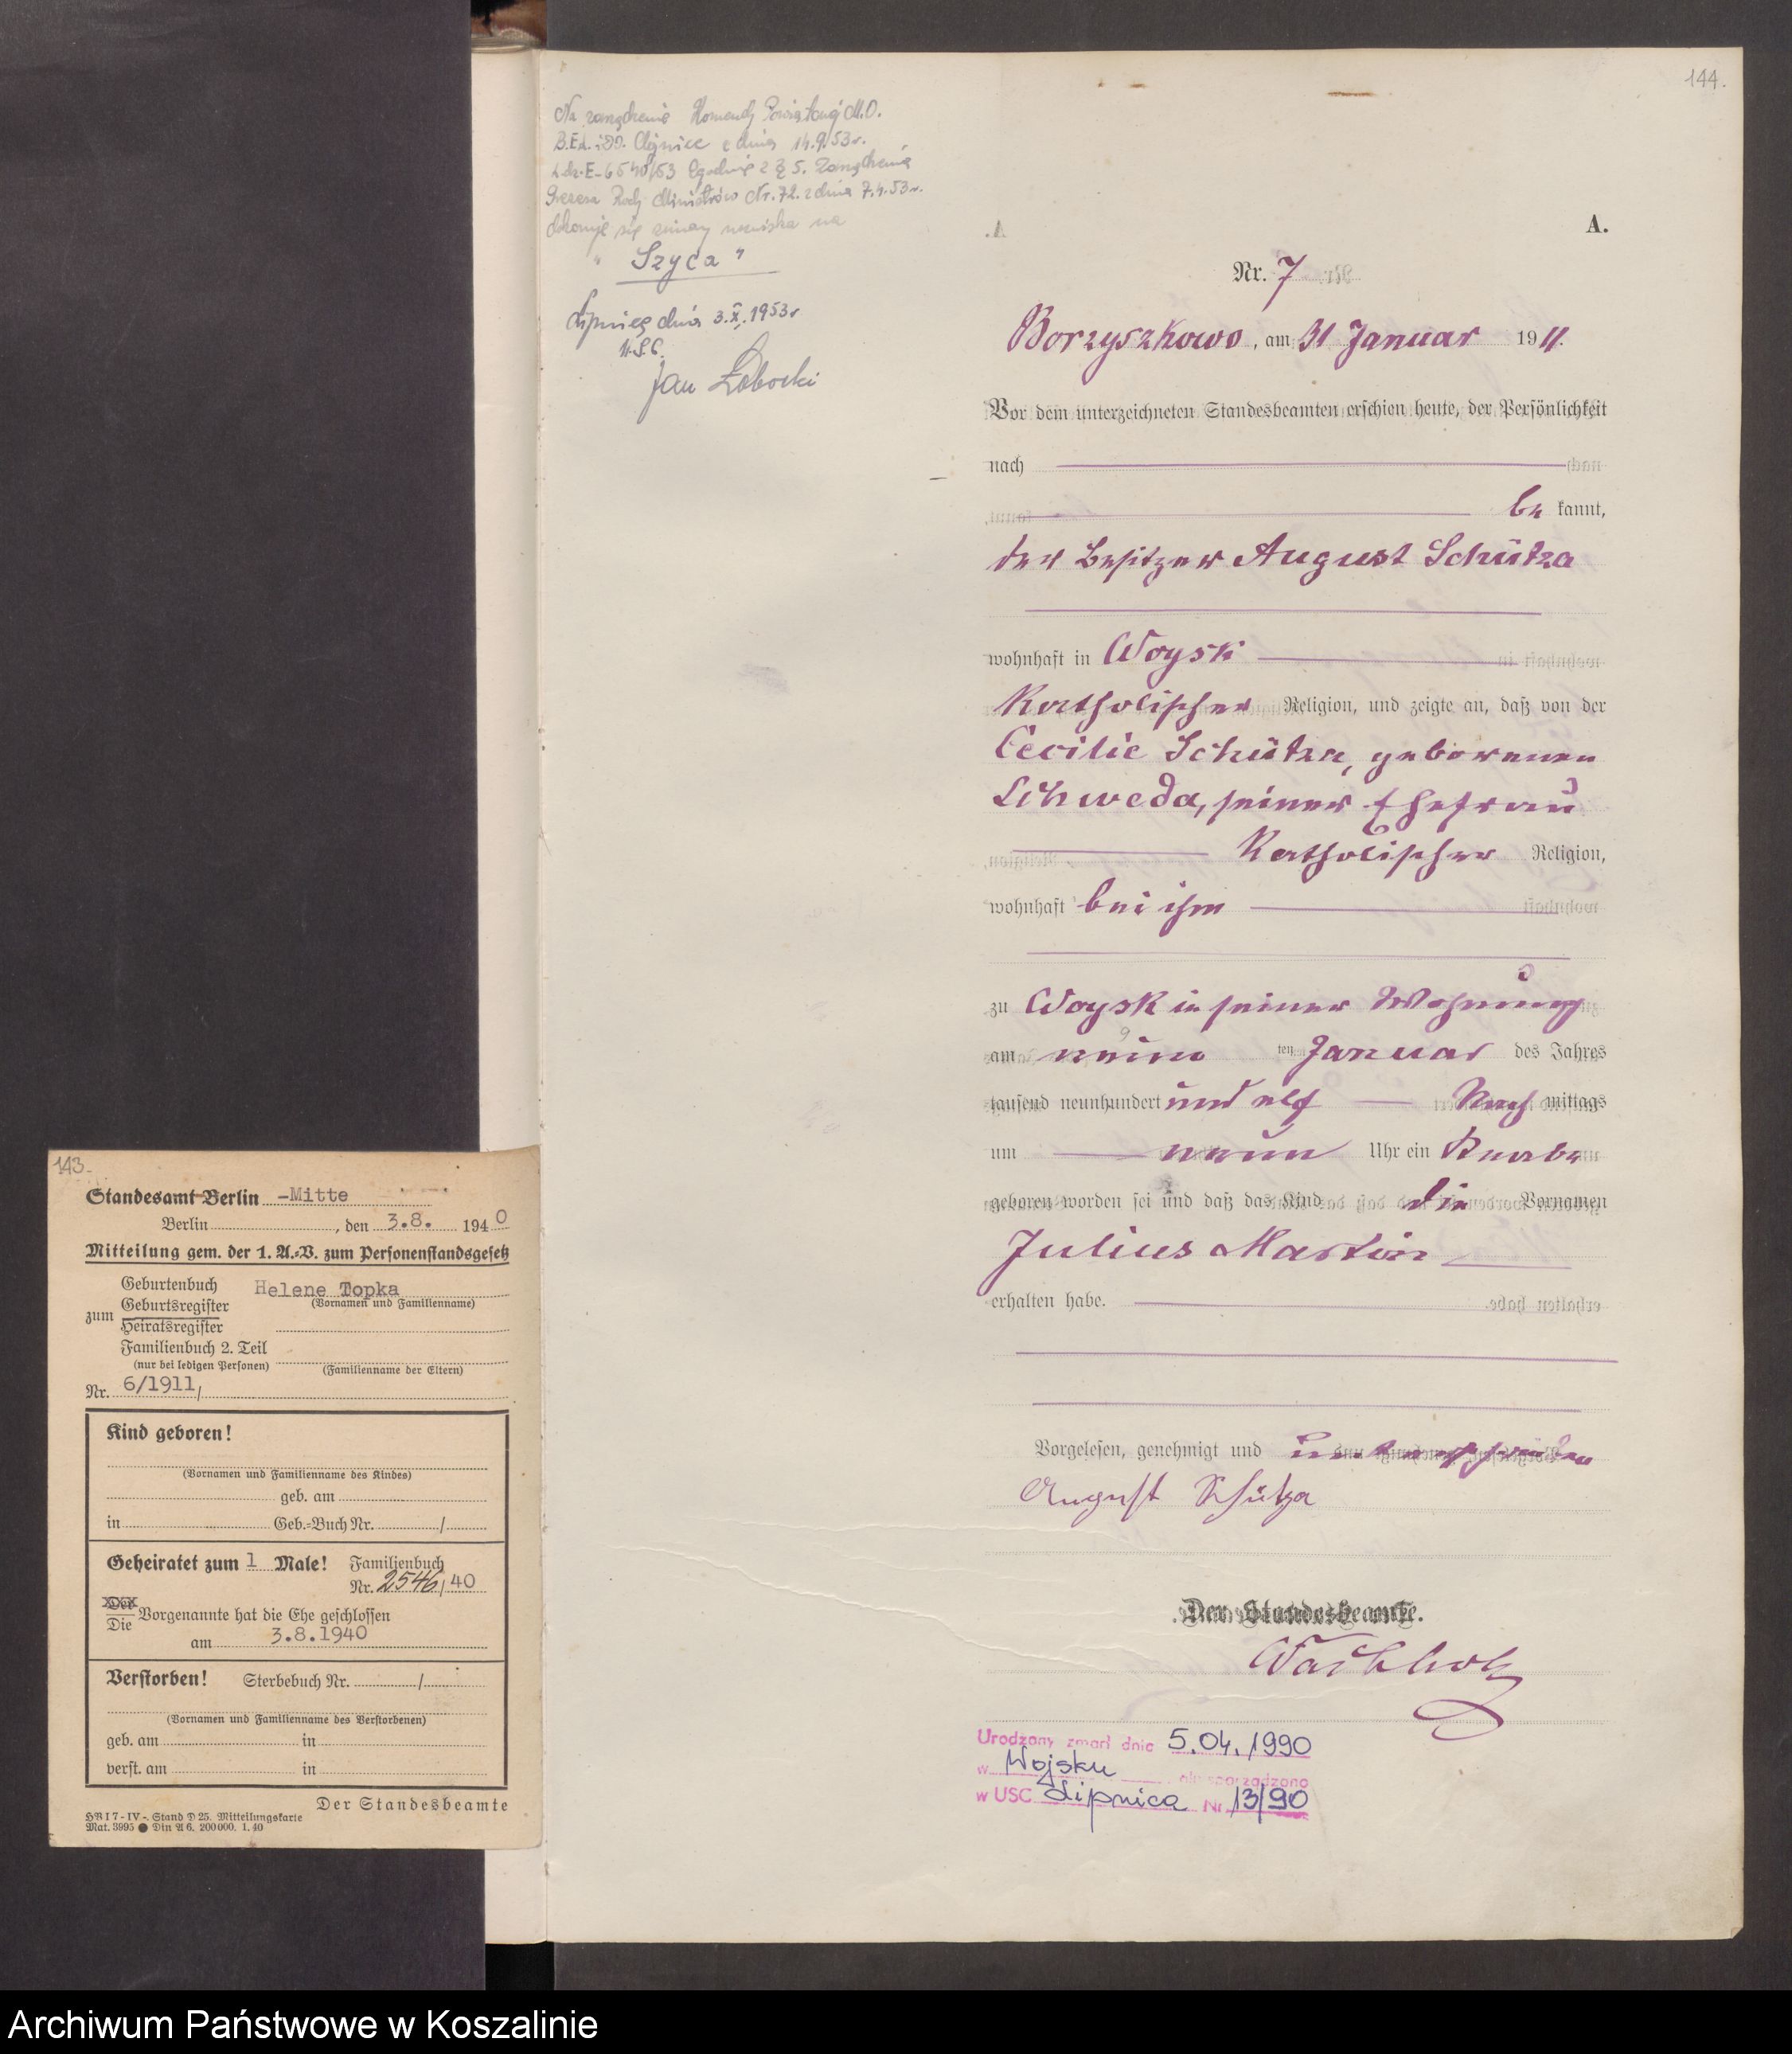 144.
Na zarządzenie Komendy Powiatowej M.O.
B.E.L. i D.O. Chojnice z dnia 14.9.53r.
L.dz.E-6540/53 Zgodnie z § 5. Zarządzenia
Prezesa Rady Ministrów Nr.72. z dnia 7.4.53r.
dokonuje się zmiany nazwiska na
" Szyca "
Lipnica dnia 3.X.1953r
U.S.C.
Jan
A.
Nr. 7
Borzyszkowo, am 31 Januar 1911.
Vor dem unterzeichneten Standesbeamten erschien heute, der Persönlichkeit
nach
be kannt,
der Besitzer August Schütza
wohnhaft in Woysk
Katholischer Religion, und zeigte an, daß von der
Cecilie Schütza, geborenen
Schweda, seiner Ehefrau
Katholischer Religion,
wohnhaft bei ihm
zu Woysk in seiner Wohnung
am neun ten Januar des Jahres
tausend neunhundert und elf Nach mittags
um neun Uhr ein Knabe
geboren worden sei und daß das Kind die Vornamen
Julius Martin
erhalten habe.
Vorgelesen, genehmigt und unterschrieben
August Schütza
Der Standesbeamte.
Wachholz
Urodzony zmarł dnia 5.04.1990
w Wojsku akt sporządzono
w USC Lipnica Nr 13/90
143.
Standesamt Berlin -Mitte
Berlin, den 3.8. 1940
Mitteilung gem. der 1. A.=V. zum Personenstandsgesetz
zum
Geburtenbuch Helene Topka
Geburtsregister (Vornamen und Familienname)
Heiratsregister
Familienbuch 2. Teil
(nur bei ledigen Personen) (Familienname der Eltern)
Nr. 6/1911/
Kind geboren!
(Vornamen und Familienname des Kindes)
geb. am
in Geb.=Buch Nr. /
Geheiratet zum 1 Male! Familienbuch
Nr. 2546/40
Der
Die Vorgenannte hat die Ehe geschlossen
am 3.8.1940
Verstorben! Sterbebuch Nr. /
(Vornamen und Familienname des Verstorbenen)
geb. am in
verst. am in
Der Standesbeamte
HB I 7 - IV -. Stand D 25. Mitteilungskarte
Mat. 3995 ● Din A 6. 200000. 1. 40
Archiwum Państwowe w Koszalinie